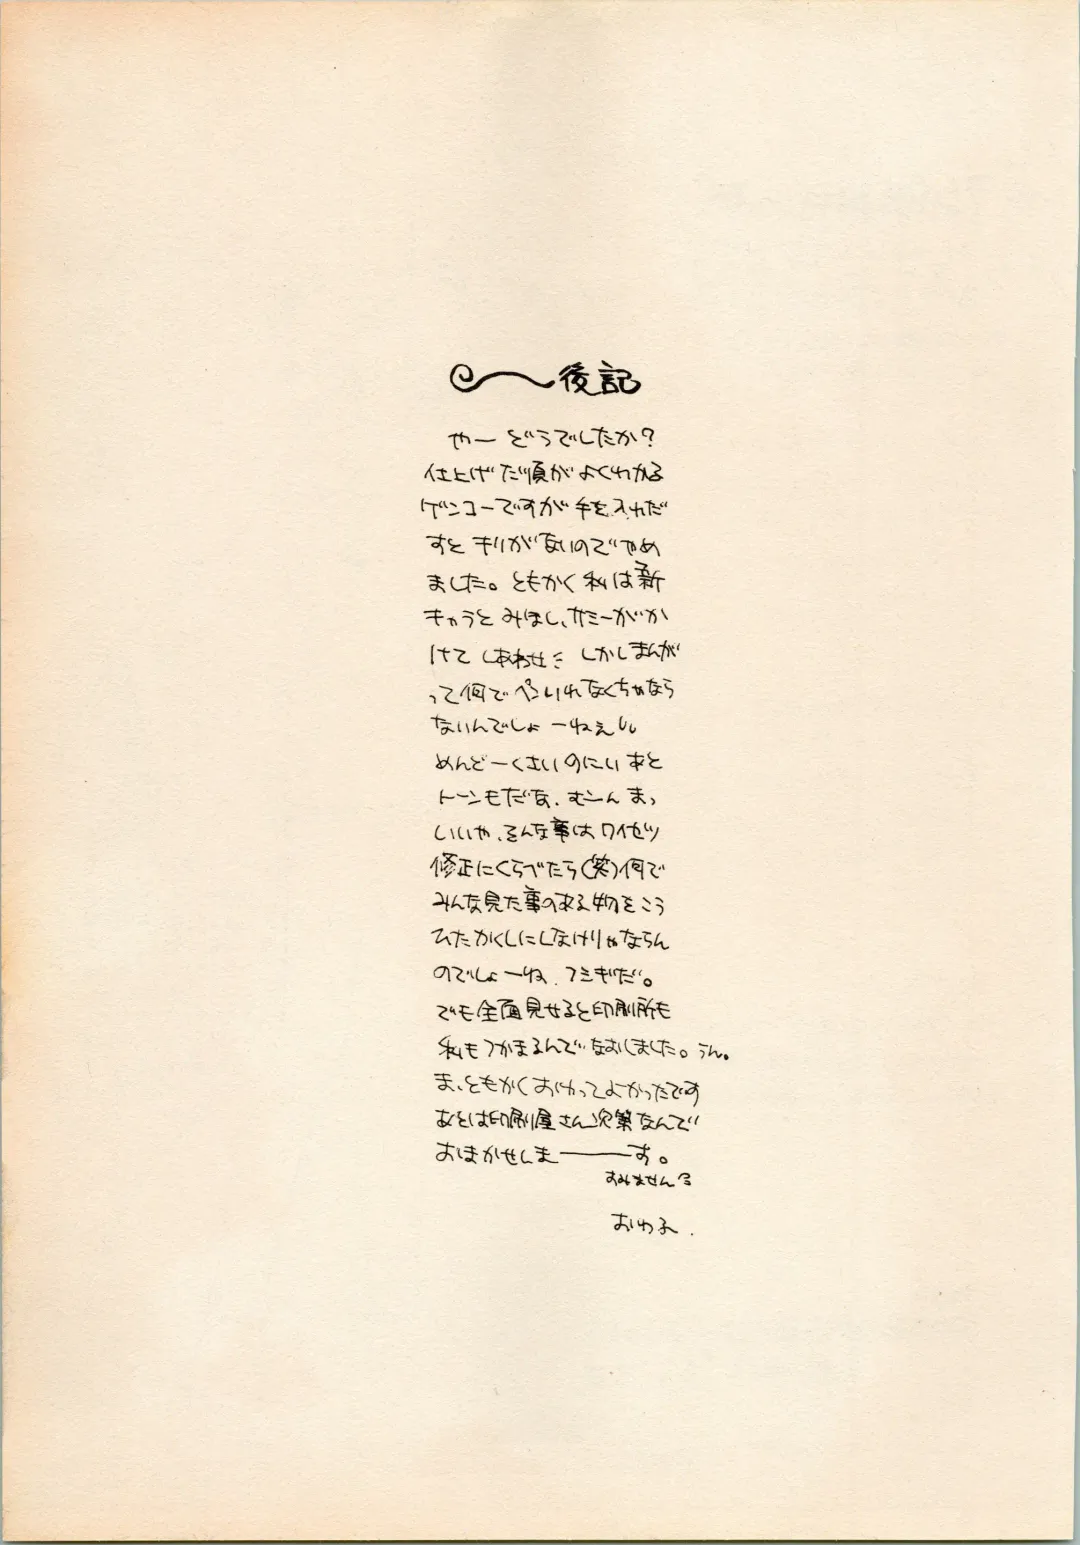 後記
やー どうでしたか?
仕上げた順がよくわかる
ゲンコーですが手を入れだ
すと キリがないのでやめ
ました。ともかく私は新
キャラと みほし、サミーがか
けて しあわせ しかしまんが
って何で ペンいれなくちゃなら
ないんでしょーねぇ
めんどーくさいのにぃ あと
トーンもだな、むーん まっ
いいや、そんな事はワイセツ
修正にくらべたら(笑)何で
みんな見た事のある物をこう
ひたかくしにしなけりゃならん
のでしょーね、フシギだ。
でも全面見せると印刷所も
私もつかまるんでなおしました。うん。
ま、ともかくおわってよかったです
あとは印刷屋さん次第なんで
おまかせしまーーーす。
すみません
おわる.